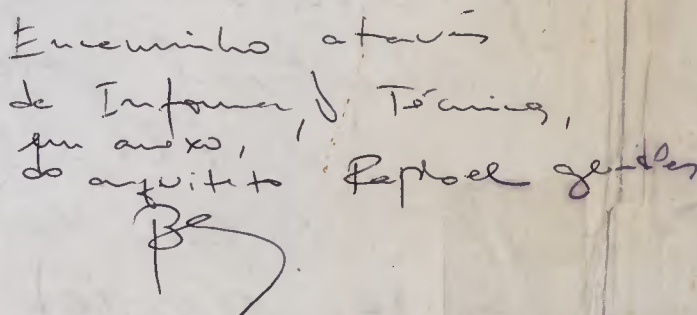 Encaminho através
de Informação Técnica,
em anexo,
do arquiteto Raphael